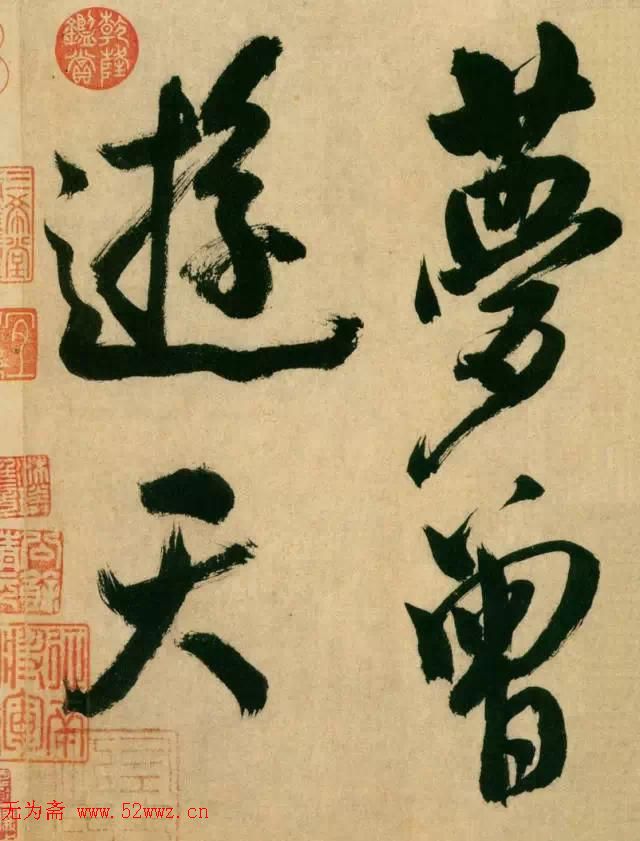 夢曾
遊天
乾隆鑑賞
三希堂
无为斋 www.52wwz.cn